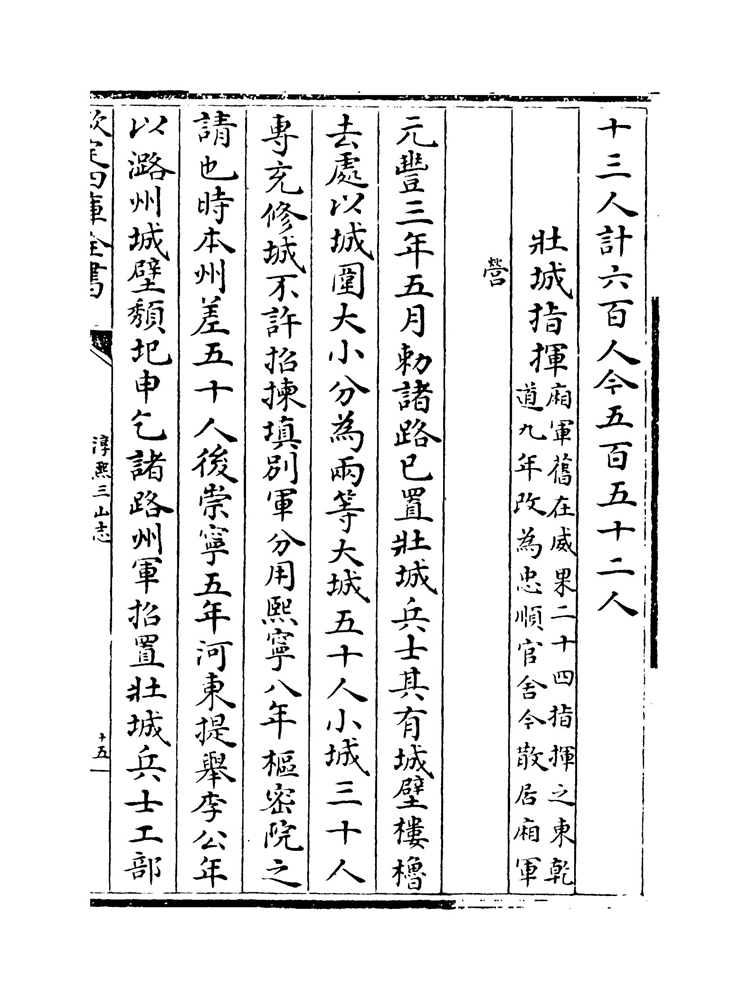 十三人計六百人今五百五十二人
壯城指揮廂軍舊在威果二十四指揮之東乾
道九年改為忠順官舍今散居廂軍
營
元豐三年五月勅諸路已置壯城兵士其有城壁樓櫓
去處以城圍大小分為兩等大城五十人小城三十人
專充修城不許招揀填別軍分用熙寧八年樞密院之
請也時本州差五十人後崇寧五年河東提舉李公年
以潞州城壁頽圮申乞諸路州軍招置壯城兵士工部
欽定四庫全書
淳熙三山志
十五